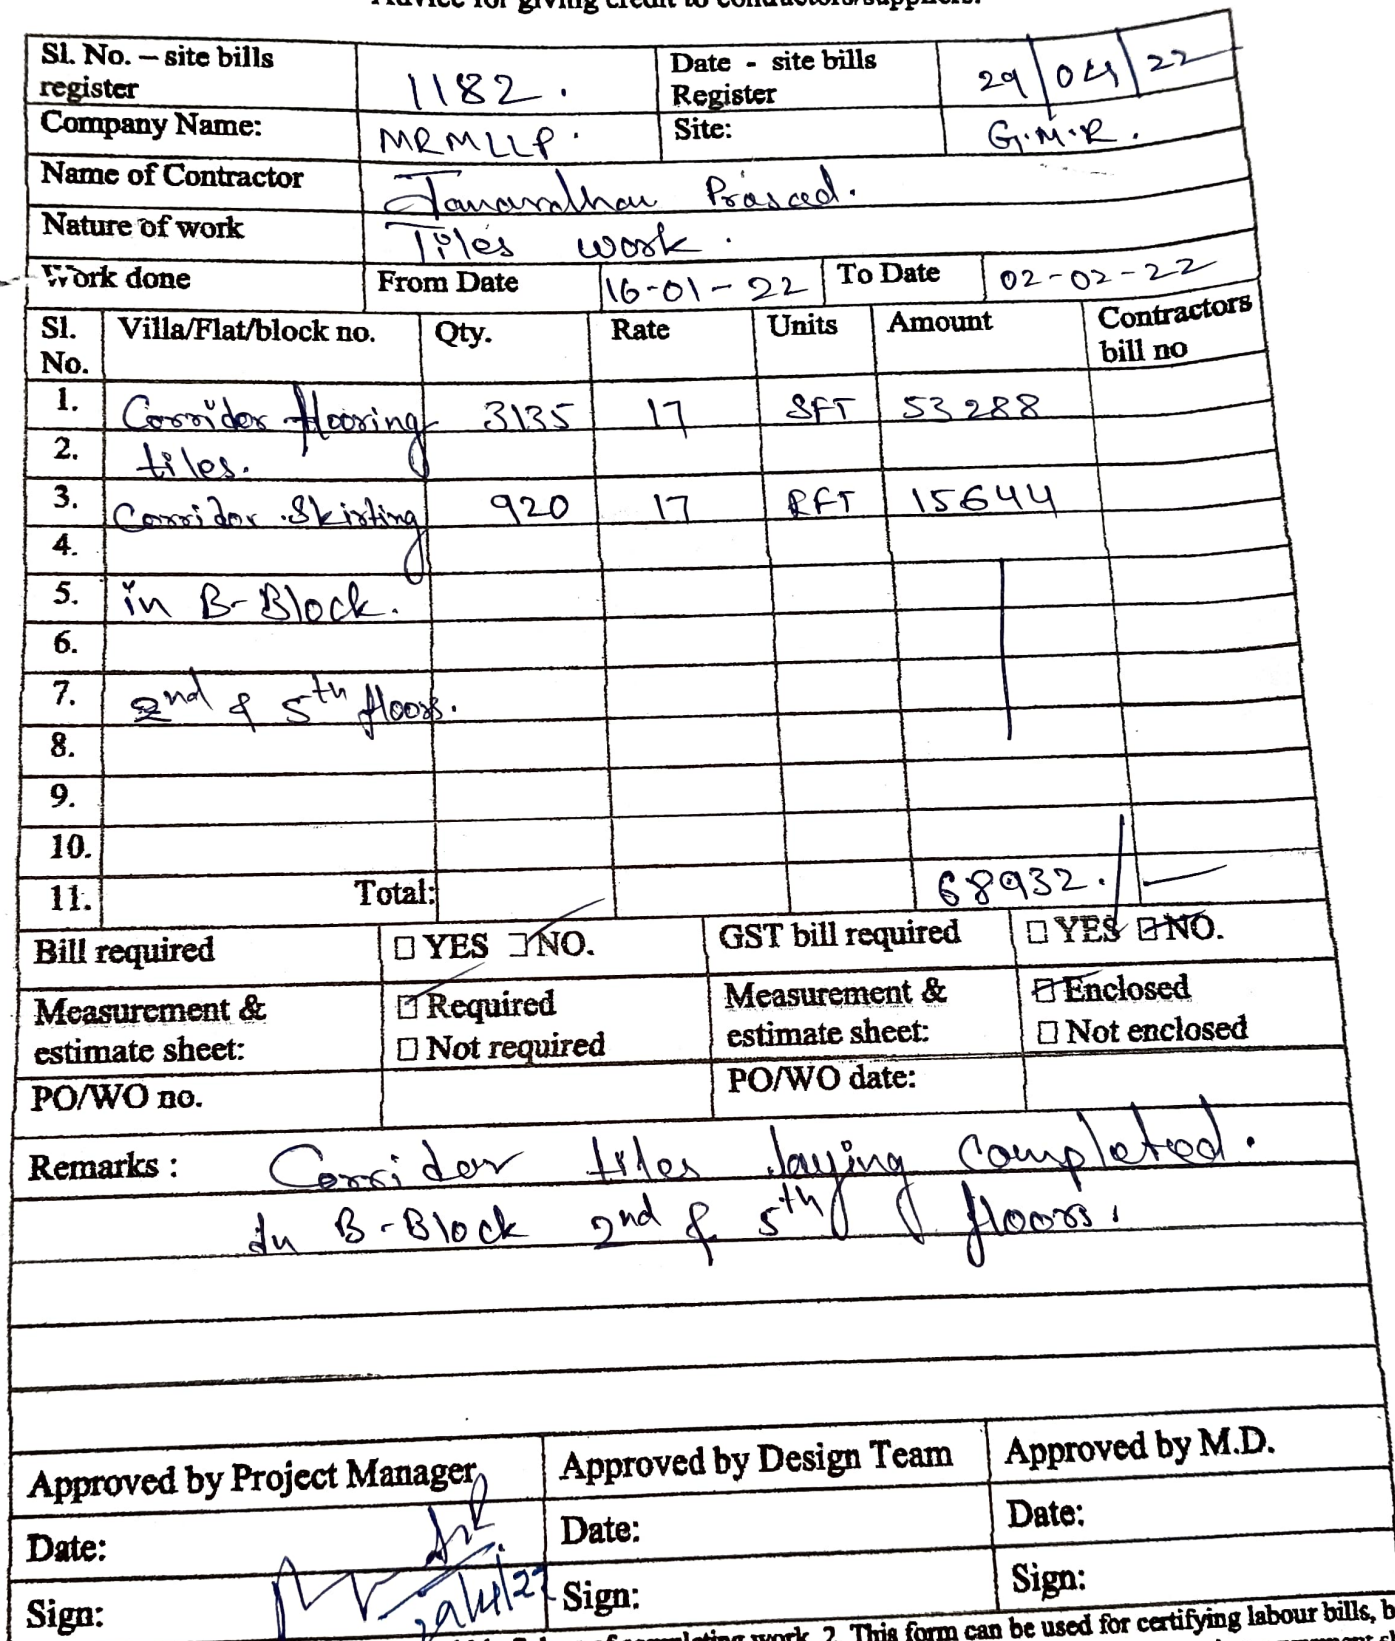 Advice for giving credit to contractors/suppliers.
Sl. No. – site bills register 1182. Date - site bills Register 29/04/22
Company Name: MRMLLP. Site: G.M.R.
Name of Contractor Janardhan Prasad.
Nature of work Tiles work.
Work done From Date 16-01-22 To Date 02-02-22
Sl. No. Villa/Flat/block no. Qty. Rate Units Amount Contractors bill no
1. Corridor flooring 3135 17 SFT 53288
2. tiles.
3. Corridor Skirting 920 17 RFT 15644
4.
5. in B-Block.
6.
7. 2nd & 5th floors.
8.
9.
10.
11. Total: 68932.
Bill required YES NO. GST bill required YES NO.
Measurement & estimate sheet: Required Not required Measurement & estimate sheet: Enclosed Not enclosed
PO/WO no. PO/WO date:
Remarks : Corridor tiles laying completed.
In B-Block 2nd & 5th floors.
Approved by Project Manager Approved by Design Team Approved by M.D.
Date: Date: Date:
Sign: Sign: Sign:
completing work. 2. This form can be used for certifying labour bills, b